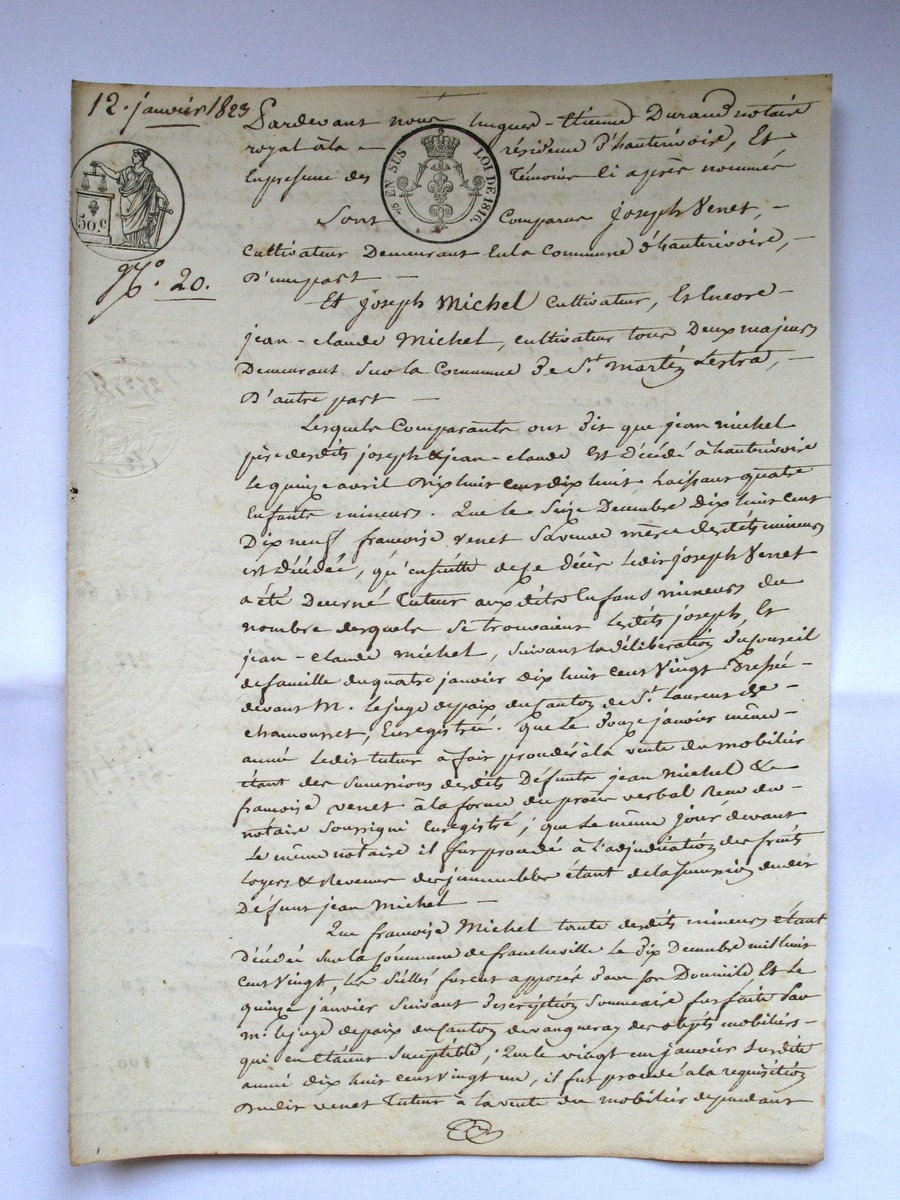 12. janvier 1823
Pardevant nous hugues-Etienne Durand notaire
royal à la résidence d'hauterivoire, Et
En presence des Témoins Ci après nommés
25 EN SUS LOI DE 1816.
50.C
Sont Comparus joseph Venet, -
Cultivateur Demeurant En la Commune d'hauterivoire, -
D'une part -
N.º 20.
Et joseph Michel Cultivateur, Et Encore -
jean-claude Michel, cultivateur tous Deux majeurs
Demeurant Sur la Commune De St. martin Lestra, -
D'autre part -
Lesquels Comparants ont Dit que jean michel
père desdits joseph & jean-claude Est décédé à hauterivoire
Le quinze avril Dix huit cent dix huit Laissant quatre
Enfants mineurs. Que le Seize Decembre dix huit cent
Dix neuf francoise venet Sa veuve mère desdits mineurs
est Décédée, qu'ensuitte de ce Décès Ledit joseph Venet
a été Decerné Tuteur auxdits Enfans mineurs du
nombre desquels Se trouvaient Lesdits joseph, Et
jean-claude Michel, Suivant la Déliberation du Conseil
de famille du quatre janvier dix huit cent Vingt Dressée
devant M. Le juge de paix du Canton de St. Laurent de -
chamousset, Enregistrée. Que Le Douze janvier même -
année Ledit tuteur à fait procéder à la vente du mobilier
étant des Successions desdits Défunts jean Michel &
francoise venet à la forme du procès verbal Recu du -
notaire Soussigné Enregistré; que Le même jour devant
Le même notaire il fut procédé à L'adjudication des fruits
Loyers & Revenus des jmmeubles étant de la Succession dudit
Défunt jean Michel -
Que francoise Michel tante desdits mineurs étant
Décédée Sur la Commune de francheville le Dix Decembre mil huit
Cent Vingt, les Sellés furent apposés dans Son Domicile Et le
quinze janvier Suivant Description Sommaire fut faite Par
M. le juge de paix du Canton de vaugneray des objets mobiliers -
qui en Etaient Suceptible; Que le vingt un janvier Susdite
année dix huit cent Vingt un, il fut procédé a la requisition
Dudit venet tuteur à la vente du mobilier dependant